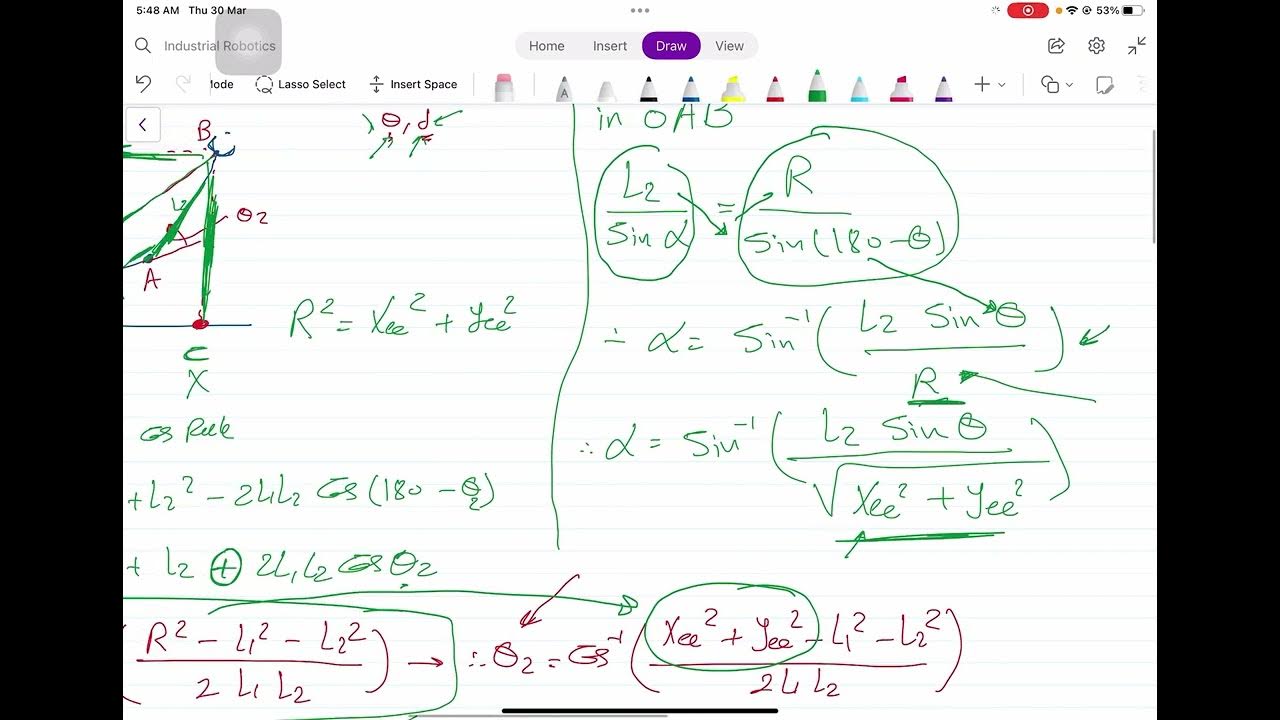 5:48 AM Thu 30 Mar
53%
Industrial Robotics
Home Insert Draw View
Mode Lasso Select Insert Space
B
θ, d
L2
θ2
A
C
X
R² = Xee² + Yee²
Cos Rule
+ L2² - 2L1L2 Cos(180 - θ2)
+ L2 + 2L1L2 Cos θ2
(R² - L1² - L2² / 2 L1 L2) →
in OAB
L2 / Sin α = R / Sin(180 - θ)
∴ α = Sin⁻¹ (L2 Sin θ / R)
∴ α = Sin⁻¹ (L2 Sin θ / √Xee² + Yee²)
∴ θ2 = Cos⁻¹ (Xee² + Yee² - L1² - L2² / 2L1L2)